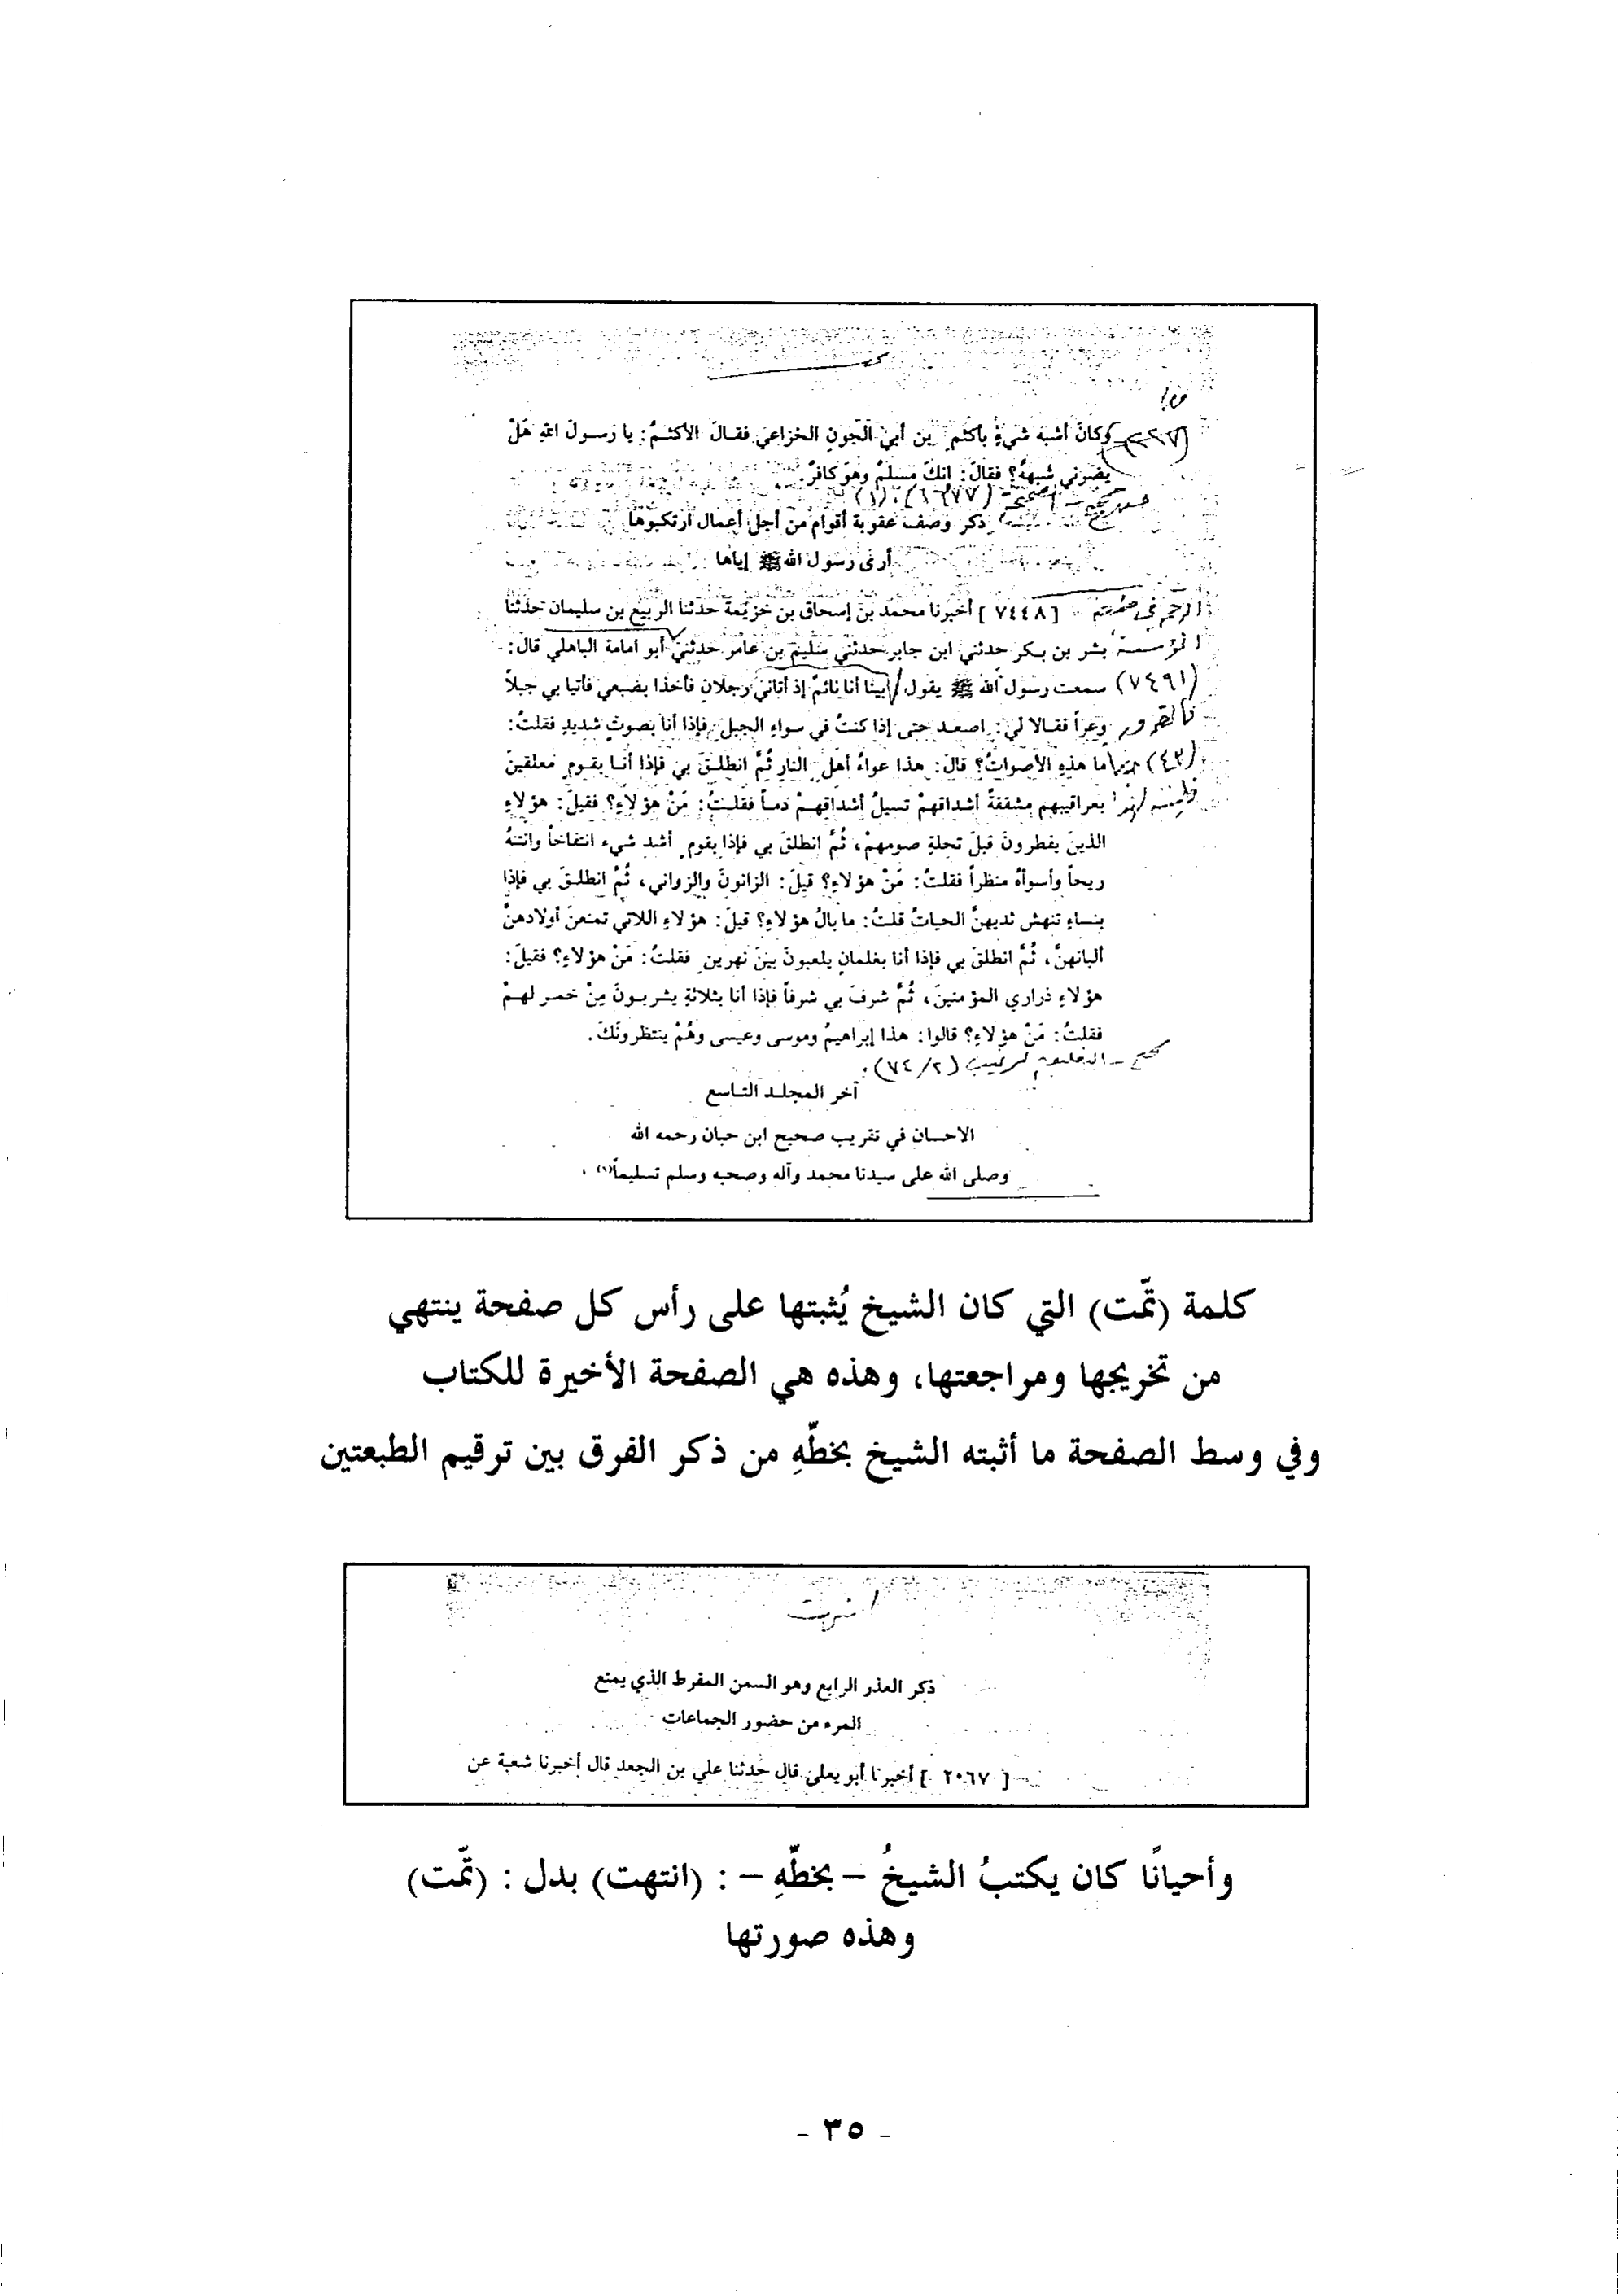 تمت
(٧٣٩٧) وكانَ أشبهَ شيءٍ بأكثم بن أبي الجونِ الخزاعي فقالَ الأكثمُ: يا رسولَ اللهِ هَلْ
يضرني شبههُ؟ فقالَ: إنكَ مسلمٌ وهوَ كافرٌ.
حسن صحيح - الصحيحة (١٦٧٧)
ذكر وصف عقوبة أقوام من أجل أعمال ارتكبوها
أرى رسول الله ﷺ إياها
[٧٤٤٨] أخبرنا محمد بن إسحاق بن خزيمة حدثنا الربيع بن سليمان حدثنا
المؤسسة بشر بن بكر حدثني ابن جابر حدثني سليم بن عامر حدثني أبو امامة الباهلي قالَ:
(٧٤٩١) سمعت رسول الله ﷺ يقول بينا أنا نائمٌ إذ أتاني رجلانِ فأخذا بضبعي فأتيا بي جبلاً
وعراً فقالا لي: اصعد حتى إذا كنتُ في سواءِ الجبلِ فإذا أنا بصوتٍ شديدٍ فقلتُ:
(٤٢) ما هذهِ الأصواتُ؟ قالَ: هذا عواءُ أهل النارِ ثُمَّ انطلقَ بي فإذا أنا بقومٍ معلقينَ
بعراقيبهم مشققةً أشداقهمْ تسيلُ أشداقهمْ دماً فقلتُ: مَنْ هؤلاءِ؟ فقيلَ: هؤلاءِ
الذينَ يفطرونَ قبلَ تحلةِ صومهمْ، ثُمَّ انطلقَ بي فإذا بقوم أشد شيء انتفاخاً وانتنهُ
ريحاً وأسوأهُ منظراً فقلتُ: مَنْ هؤلاءِ؟ قيلَ: الزانونَ والزواني، ثُمَّ انطلقَ بي فإذا
بنساءٍ تنهش ثديهنَّ الحياتُ قلتُ: ما بالُ هؤلاءِ؟ قيلَ: هؤلاءِ اللاتي تمنعنَ أولادهنَّ
ألبانهنَّ، ثُمَّ انطلقَ بي فإذا أنا بغلمانٍ يلعبونَ بينَ نهرين فقلتُ: مَنْ هؤلاءِ؟ فقيلَ:
هؤلاءِ ذراري المؤمنينَ، ثُمَّ شرفَ بي شرفاً فإذا أنا بثلاثةٍ يشربونَ مِنْ خمرٍ لهمْ
فقلتُ: مَنْ هؤلاءِ؟ قالوا: هذا إبراهيمُ وموسى وعيسى وهُمْ ينتظرونَكَ.
صحيح - التعليق الرغيب (٧٤/٢).
آخر المجلد التاسع
الاحسان في تقريب صحيح ابن حبان رحمه الله
وصلى الله على سيدنا محمد وآله وصحبه وسلم تسليماً(١).
كلمة (تمّت) التي كان الشيخ يُثبتها على رأس كل صفحة ينتهي
من تخريجها ومراجعتها، وهذه هي الصفحة الأخيرة للكتاب
وفي وسط الصفحة ما أثبته الشيخ بخطّهِ من ذكر الفرق بين ترقيم الطبعتين
انتهت
ذكر العذر الرابع وهو السمن المفرط الذي يمنع
المرء من حضور الجماعات
[٢٠٦٧] أخبرنا أبو يعلى قال حدثنا علي بن الجعد قال أخبرنا شعبة عن
وأحيانًا كان يكتبُ الشيخُ - بخطّهِ - : (انتهت) بدل : (تمّت)
وهذه صورتها
- ٣٥ -